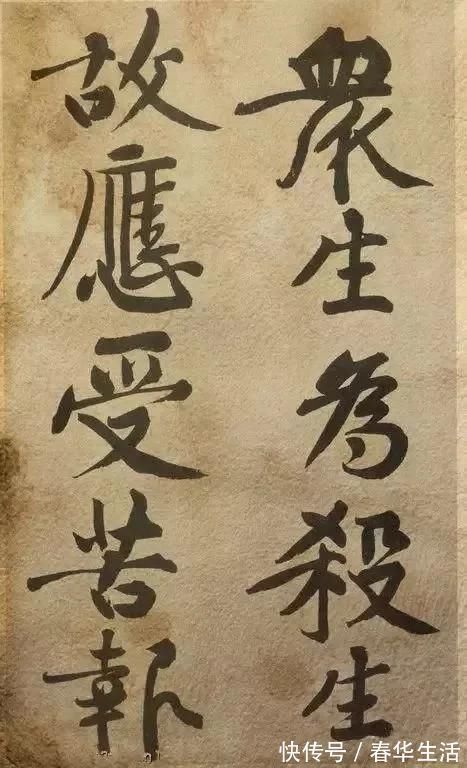 眾生為殺生
故應受苦報
快传号／春华生活